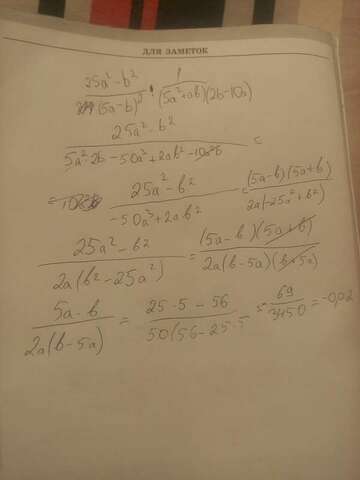 ДЛЯ ЗАМЕТОК
25a² - b² / (5a-b)² · 1 / (5a²+ab)(2b-10a)
25a² - b² / 5a²·2b - 50a³ + 2ab² - 10a²b =
= 25a² - b² / -50a³ + 2ab² = (5a-b)(5a+b) / 2a(-25a²+b²)
25a² - b² / 2a(b² - 25a²) = (5a-b)(5a+b) / 2a(b-5a)(b+5a)
5a-b / 2a(b-5a) = 25·5 - 56 / 50(56-25·5 = 69 / 3450 = -0,02